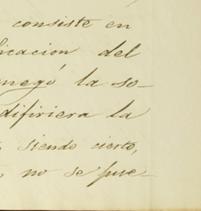 consiste en
licacion del
negó la so-
difiriera la
siendo cierto,
no se puse